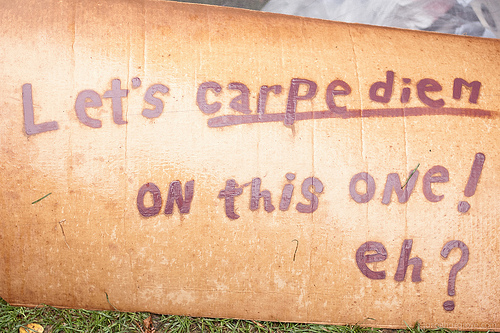 Let's carpe diem
on this one!
eh?